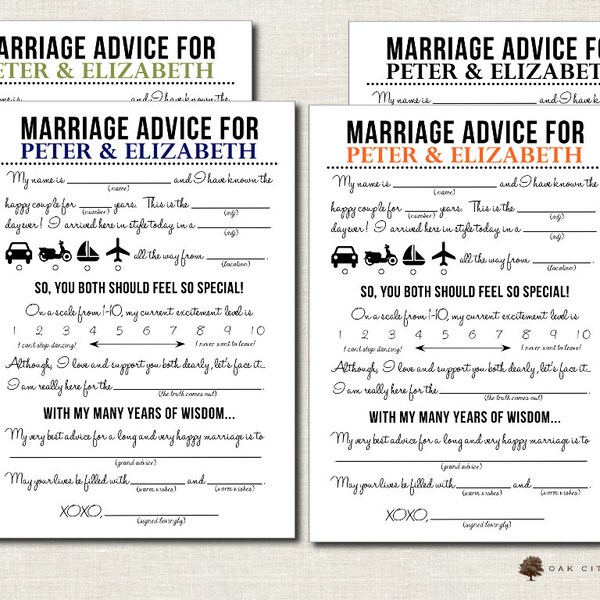 MARRIAGE ADVICE FOR
PETER & ELIZABETH
My name is and I have known the
MARRIAGE ADVICE FOR
PETER & ELIZABET
My name is and I have known the
MARRIAGE ADVICE FOR
PETER & ELIZABETH
My name is and I have known the
(name)
happy couple for years. This is the
(number) (adj)
day ever! I arrived here in style today in a
(adj)
all the way from .
(location)
SO, YOU BOTH SHOULD FEEL SO SPECIAL!
On a scale from 1-10, my current excitement level is
1 2 3 4 5 6 7 8 9 10
I can't stop dancing! I never want to leave!
Although, I love and support you both dearly, let's face it...
I am really here for the .
(the truth comes out)
WITH MY MANY YEARS OF WISDOM...
My very best advice for a long and very happy marriage is to
(grand advice)
May your lives be filled with and .
(warm wishes) (warm wishes)
XOXO,
(signed lovingly)
MARRIAGE ADVICE FOR
PETER & ELIZABETH
My name is and I have known the
(name)
happy couple for years. This is the
(number) (adj)
day ever! I arrived here in style today in a
(adj)
all the way from .
(location)
SO, YOU BOTH SHOULD FEEL SO SPECIAL!
On a scale from 1-10, my current excitement level is
1 2 3 4 5 6 7 8 9 10
I can't stop dancing! I never want to leave!
Although, I love and support you both dearly, let's face it...
I am really here for the .
(the truth comes out)
WITH MY MANY YEARS OF WISDOM...
My very best advice for a long and very happy marriage is to
(grand advice)
May your lives be filled with and .
(warm wishes) (warm wishes)
XOXO,
(signed lovingly)
OAK CIT